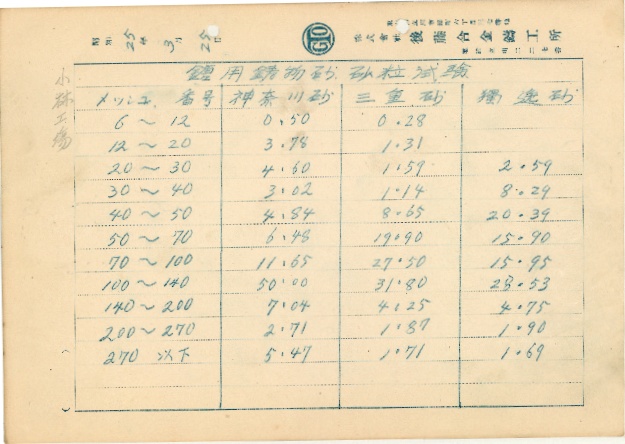 昭和 25年 3月 25日
GIO
株式會社 後藤合金鑄工所
小林工場
鐘用鑄物砂 砂粒試驗
メッシュ 番号 神奈川砂 三重砂 獨逸砂
6～12 0.50 0.28
12～20 3.78 1.31
20～30 4.60 1.59 2.59
30～40 3.02 1.14 8.29
40～50 4.84 8.65 20.39
50～70 6.48 19.90 15.90
70～100 11.65 27.50 15.95
100～140 50.00 31.80 28.53
140～200 7.04 4.25 4.75
200～270 2.71 1.87 1.90
270 以下 5.47 1.71 1.69